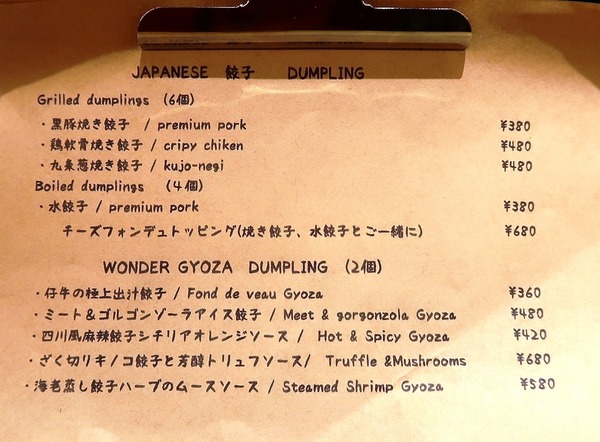 JAPANESE 餃子 DUMPLING
Grilled dumplings (6個)
・黒豚焼き餃子 / premium pork ¥380
・鶏軟骨焼き餃子 / cripy chiken ¥480
・九条葱焼き餃子 / kujo-negi ¥480
Boiled dumplings (4個)
・水餃子 / premium pork ¥380
チーズフォンデュトッピング(焼き餃子、水餃子とご一緒に) ¥680
WONDER GYOZA DUMPLING (2個)
・仔牛の極上出汁餃子 / Fond de veau Gyoza ¥360
・ミート&ゴルゴンゾーラアイス餃子 / Meet & gorgonzola Gyoza ¥480
・四川風麻辣餃子シチリアオレンジソース / Hot & Spicy Gyoza ¥420
・ざく切りキノコ餃子と芳醇トリュフソース/ Truffle &Mushrooms ¥680
・海老蒸し餃子ハーブのムースソース / Steamed Shrimp Gyoza ¥580